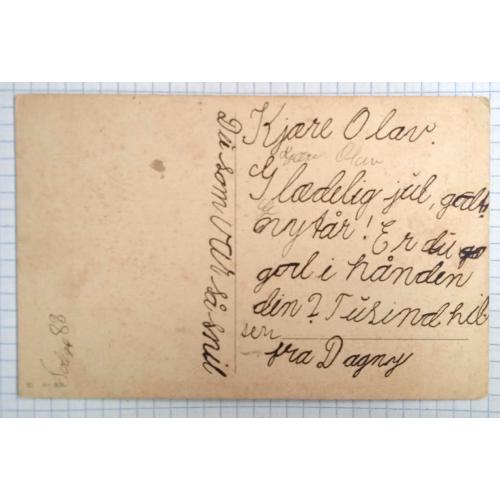 Kjære Olav.
Kjære Olav
Glædelig jul, godt
nytår! Er du
god i hånden
din? Tusind hil
sen
fra Dagny
Du som var så snil